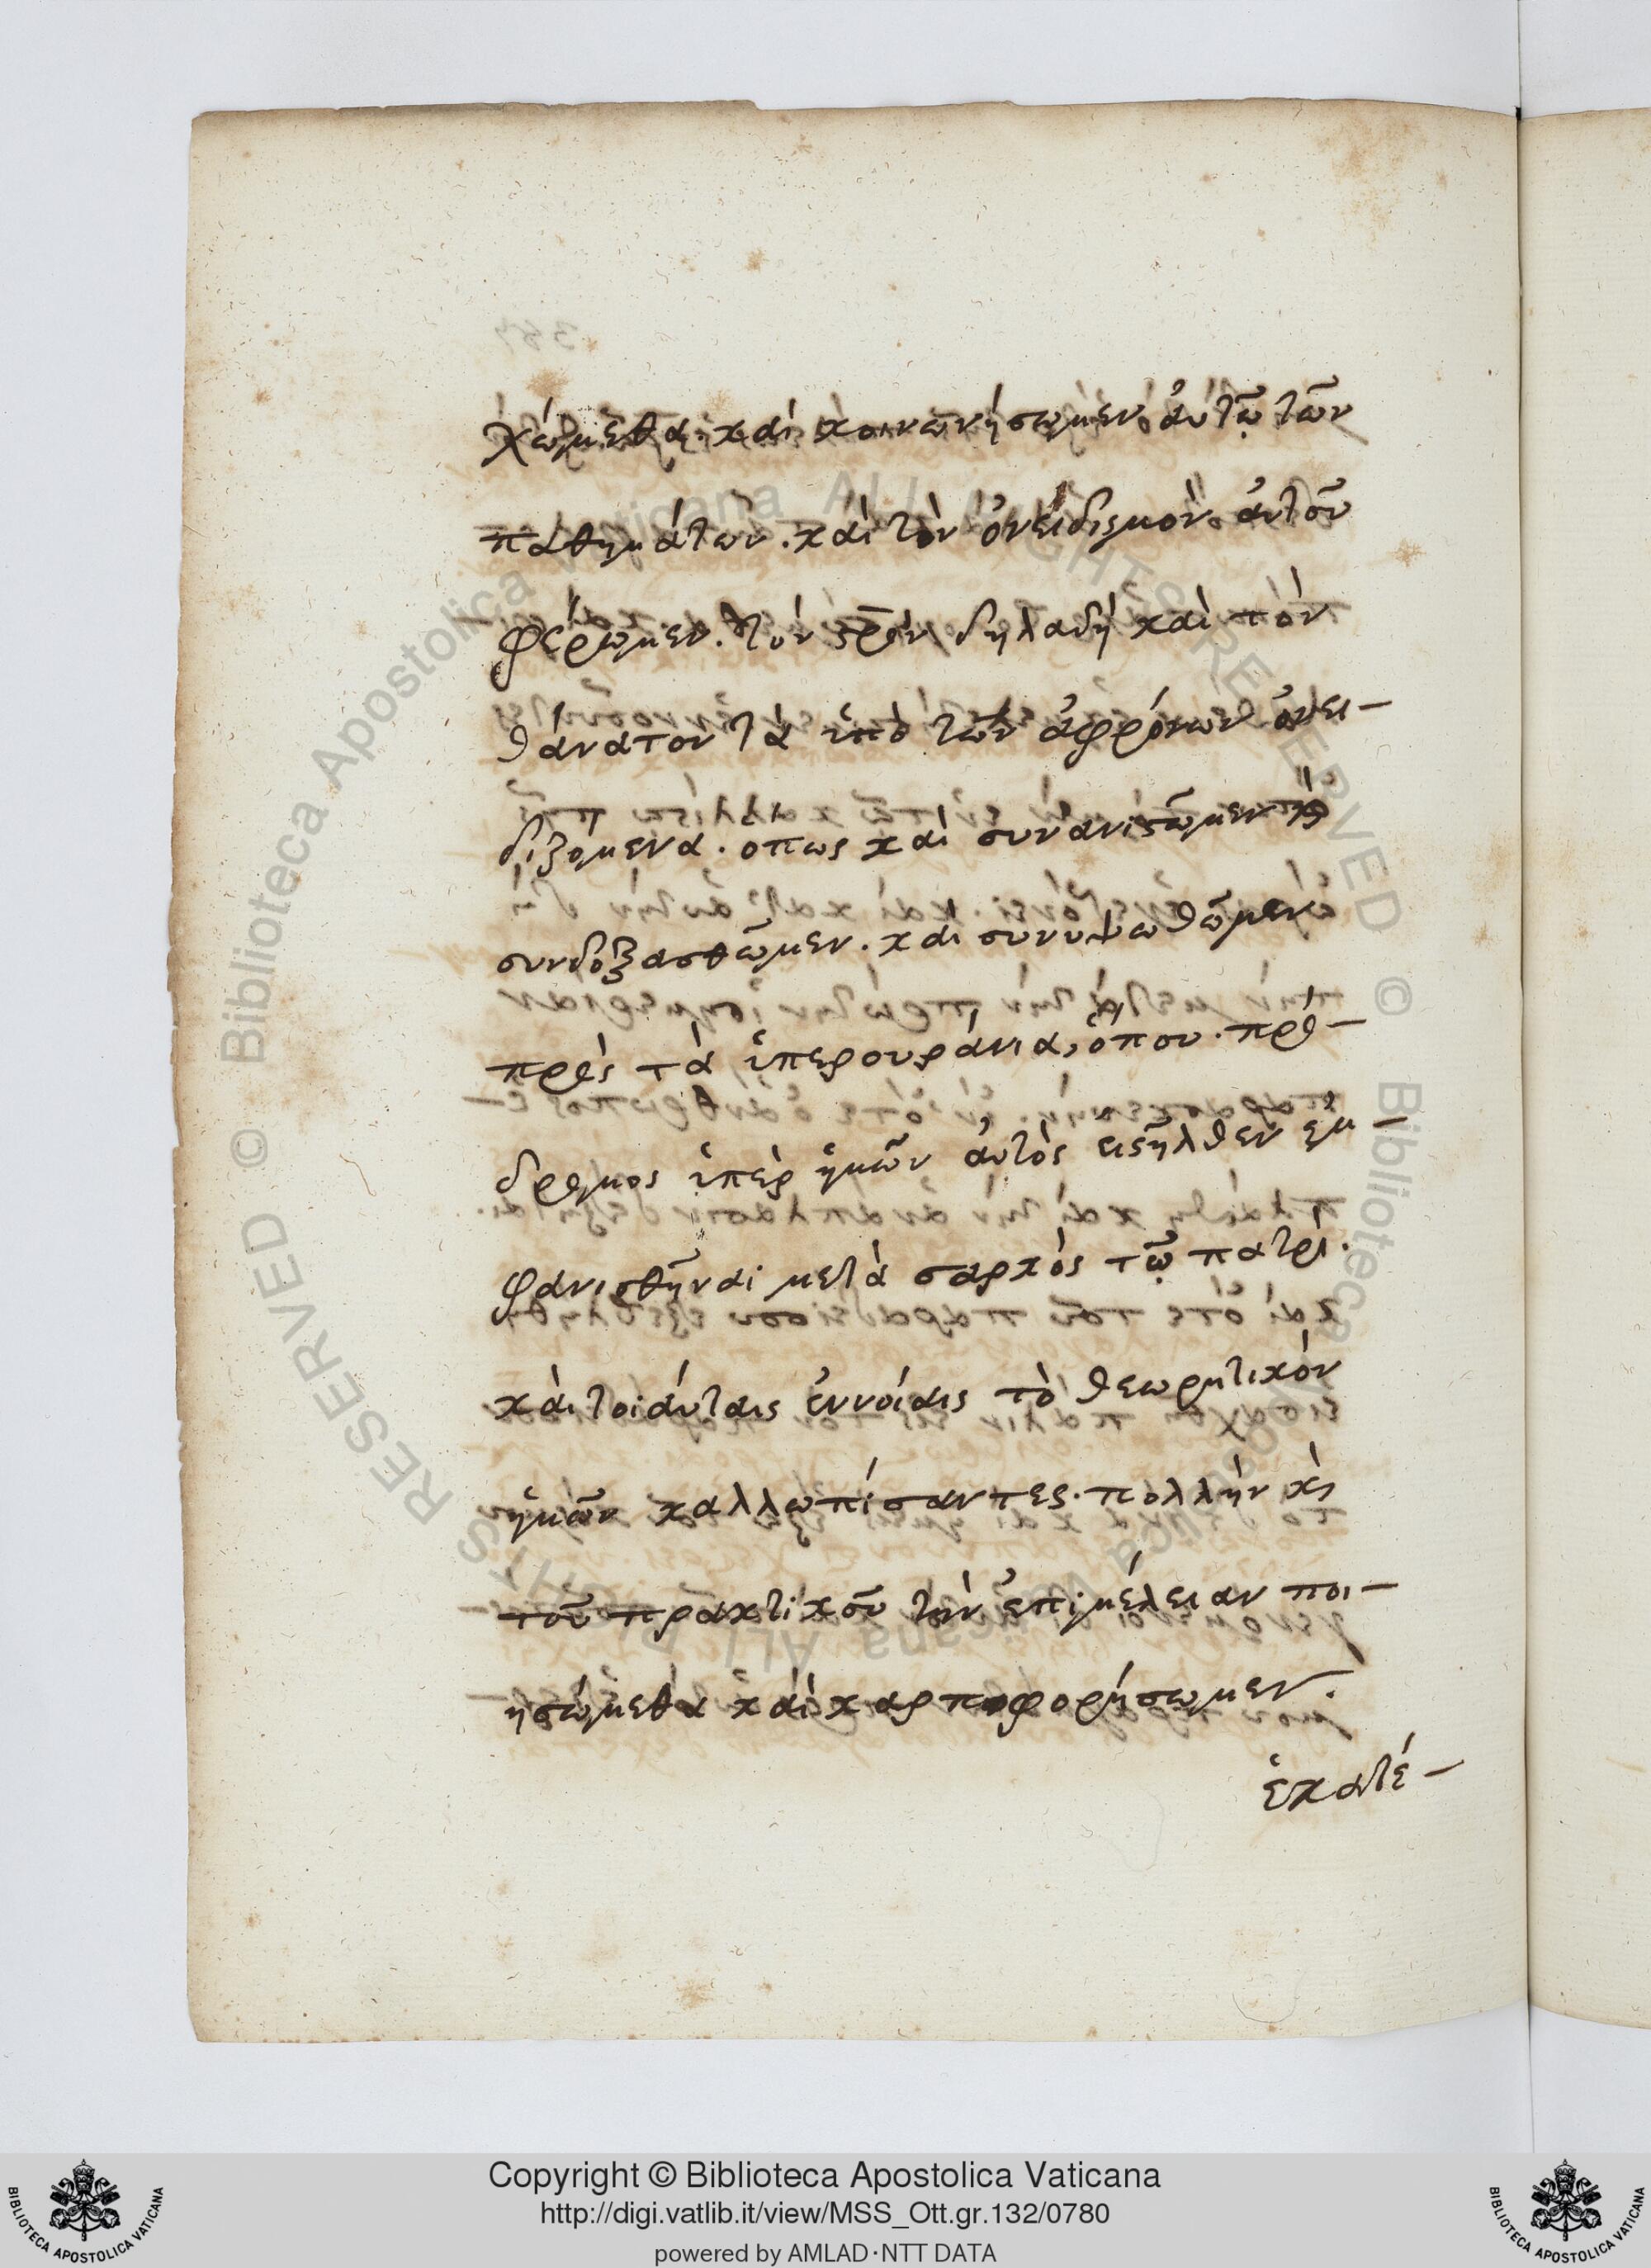 χώμεθα· καὶ κοινωνήσωμεν ἀυτῷ τῶν
παθημάτων. καὶ τὸν ὀνειδισμὸν ἀυτοῦ
φέρωμεν. τὸν σρὸν δηλαδὴ καὶ τὸν
θάνατον τὰ ὑπὸ τῶν ἀφρόνων ὀνει-
διζόμενα. οπως καὶ συνανιστῶμεν κὶ
συνδοξασθῶμεν. καὶ συνυψωθῶμεν
πρὸς τὰ ὑπερουράνια, ὅπου· πρό-
δρομος ὑπὲρ ἡμῶν ἀυτὸς εισῆλθεν ἐμ-
φανισθῆναι μετὰ σαρκὸς τῷ πατρί.
καὶ τοιάυταις ἐννόιαις τὸ θεωρητικὸν
ἡμῶν καλλωπίσαντες· πολλὴν κὶ
τοῦ πρακτικοῦ τὴν ἐπιμέλειαν ποι-
ησώμεθα καὶ καρποφορήσωμεν.
ἑκατέ-
Copyright © Biblioteca Apostolica Vaticana
http://digi.vatlib.it/view/MSS_Ott.gr.132/0780
powered by AMLAD·NTT DATA
BIBLIOTECA APOSTOLICA VATICANA
BIBLIOTECA APOSTOLICA VATICANA
© Biblioteca Apostolica Vaticana ALL RIGHTS RESERVED
© Biblioteca Apostolica Vaticana ALL RIGHTS RESERVED